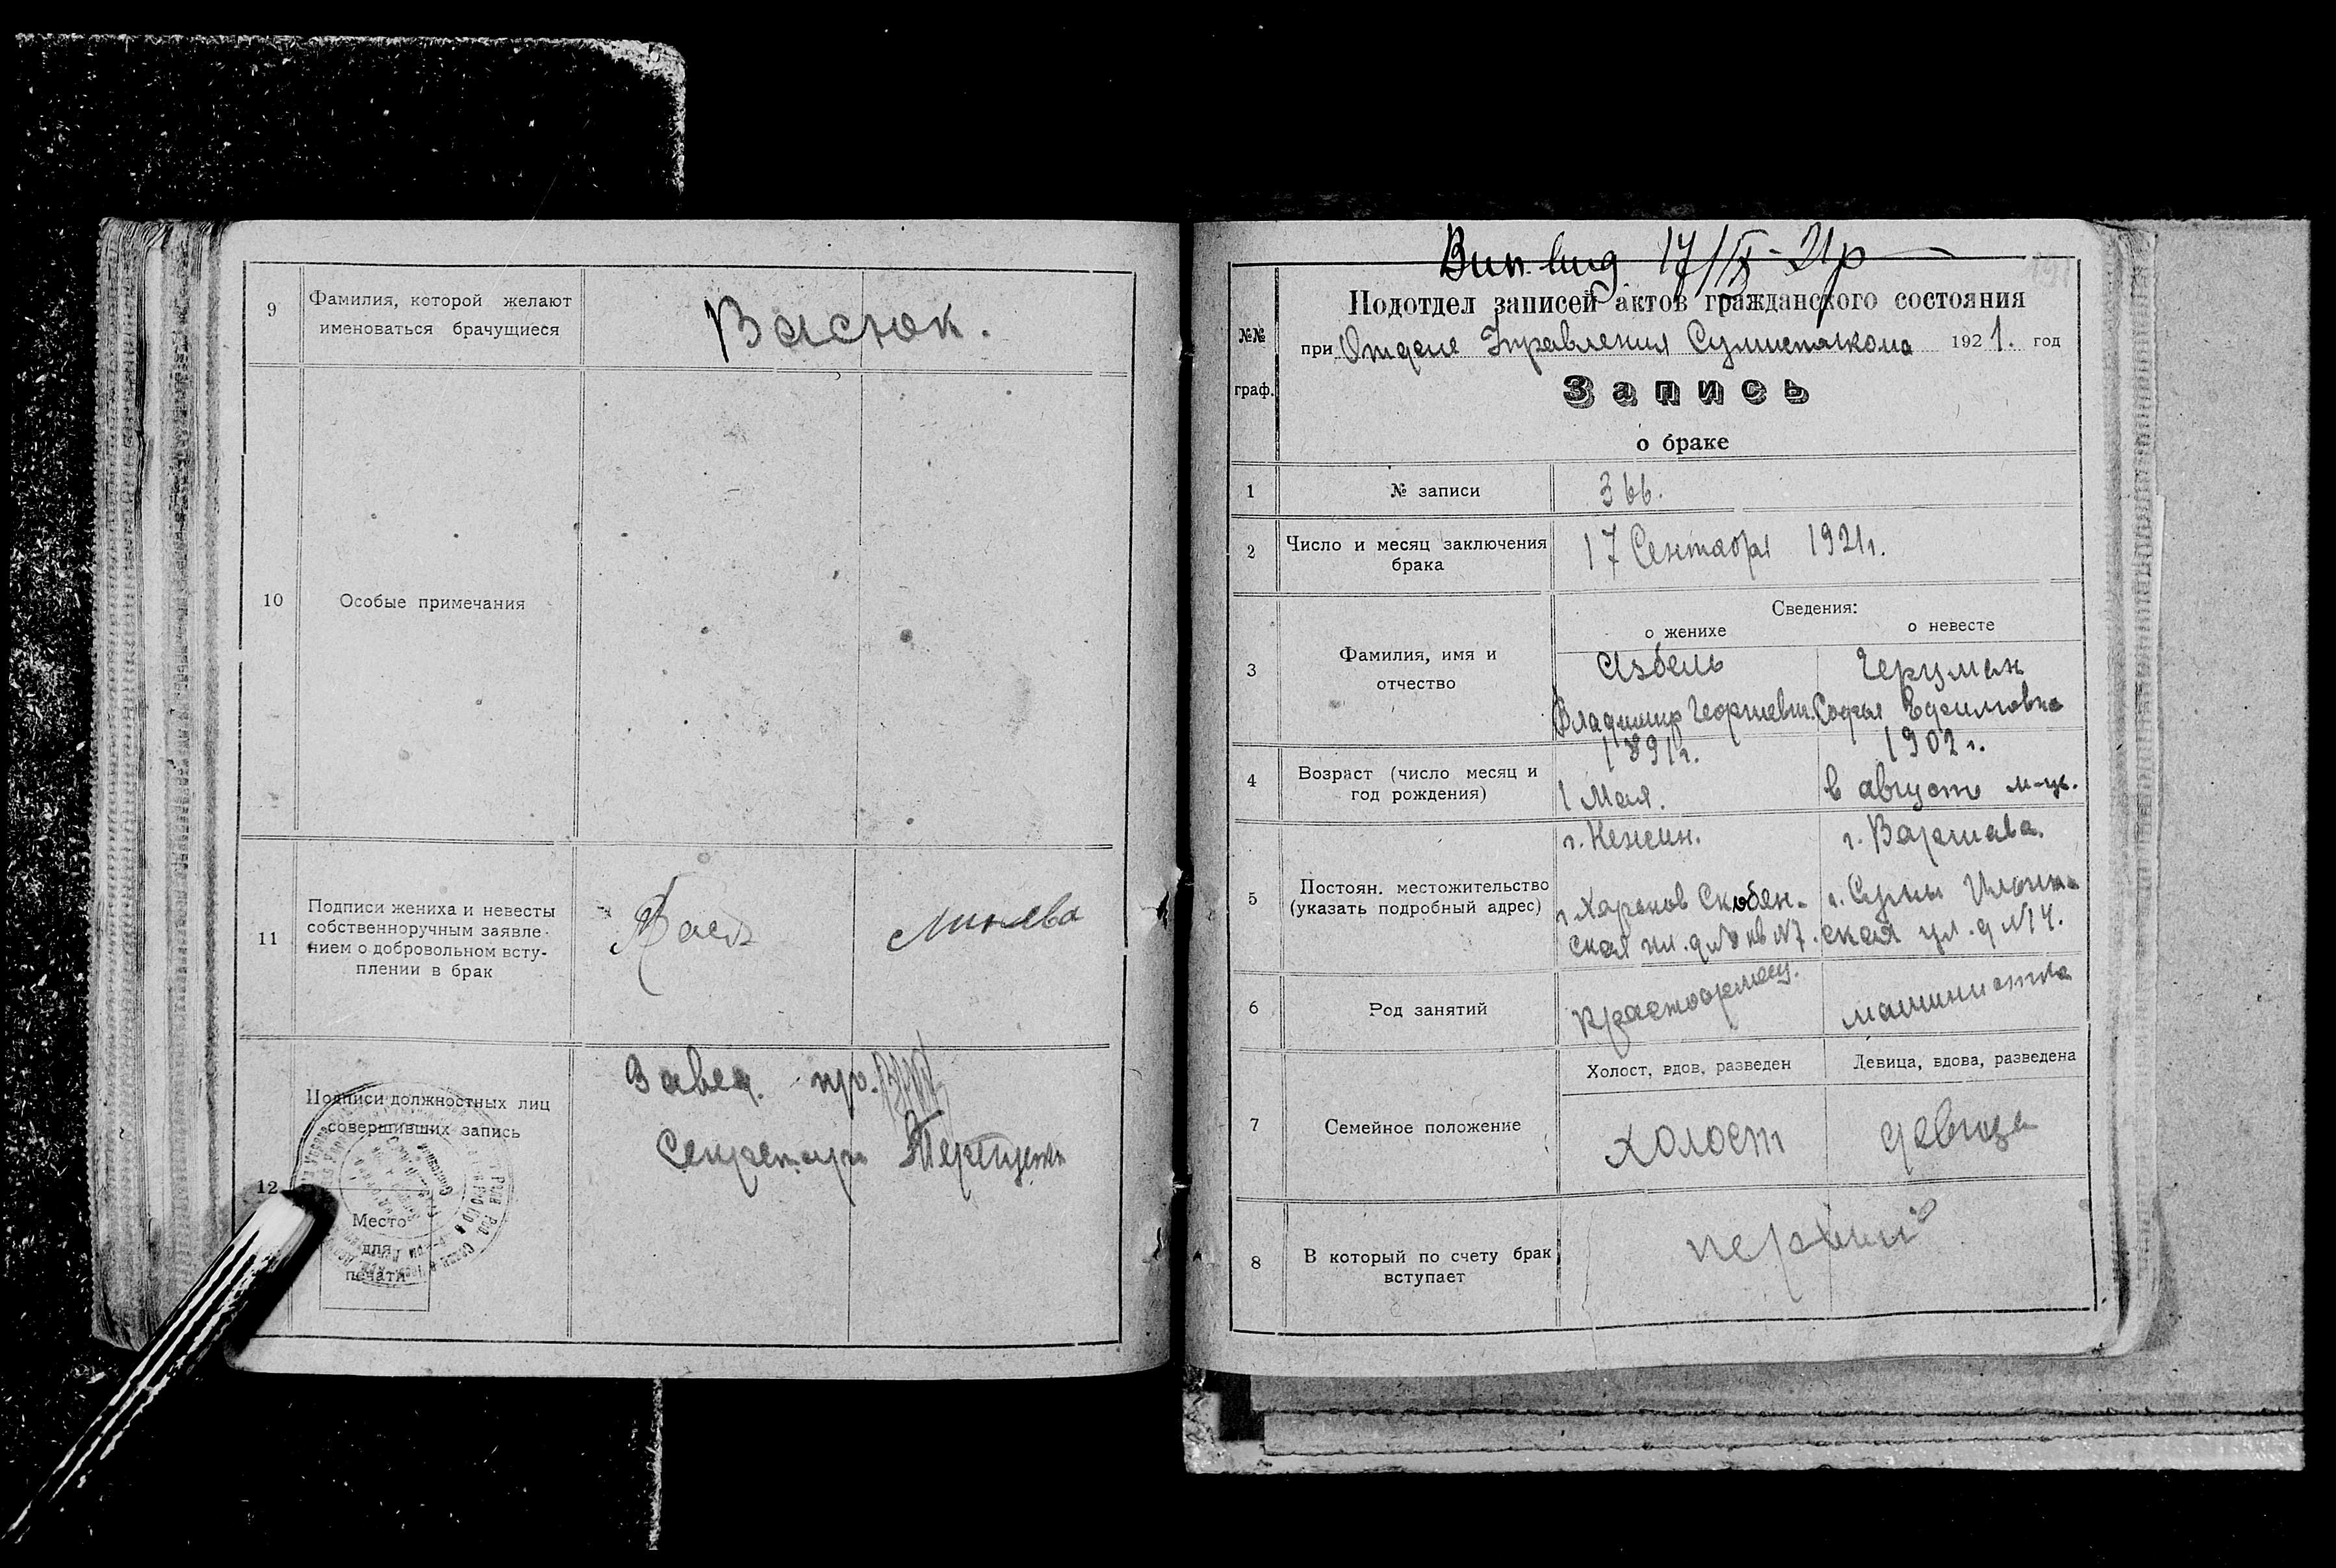 9
Фамилия, которой желают
именоваться брачущиеся
Васюк.
10
Особые примечания
11
Подписи жениха и невесты
собственноручным заявле-
нием о добровольном всту-
плении в брак
Завед. пр.
Подписи должностных лиц
совершивших запись
Секретарь
12
Место
для
печати
17/IX-21р
Подотдел записей актов гражданского состояния
№№
граф.
при Отделе Управления 1921. год
Запись
о браке
1
№ записи
366.
2
Число и месяц заключения
брака
17 Сентября 1921г.
Сведения:
о женихе
о невесте
3
Фамилия, имя и
отчество
Азбель
Герцман
Владимир Георгиевич.
Софья Ефимовна
4
Возраст (число месяц и
год рождения)
1891г.
1 Мая.
1902г.
в августе м-це.
5
Постоян. местожительство
(указать подробный адрес)
г. Нежин.
г. Харьков Скобел-
ская пл. д №8 кв №7.
г. Варшава.
г. Сумы
ская ул. д №14.
6
Род занятий
Красноармеец.
машинистка
7
Семейное положение
Холост, вдов, разведен
Девица, вдова, разведена
холост
девица
8
В который по счету брак
вступает
первый